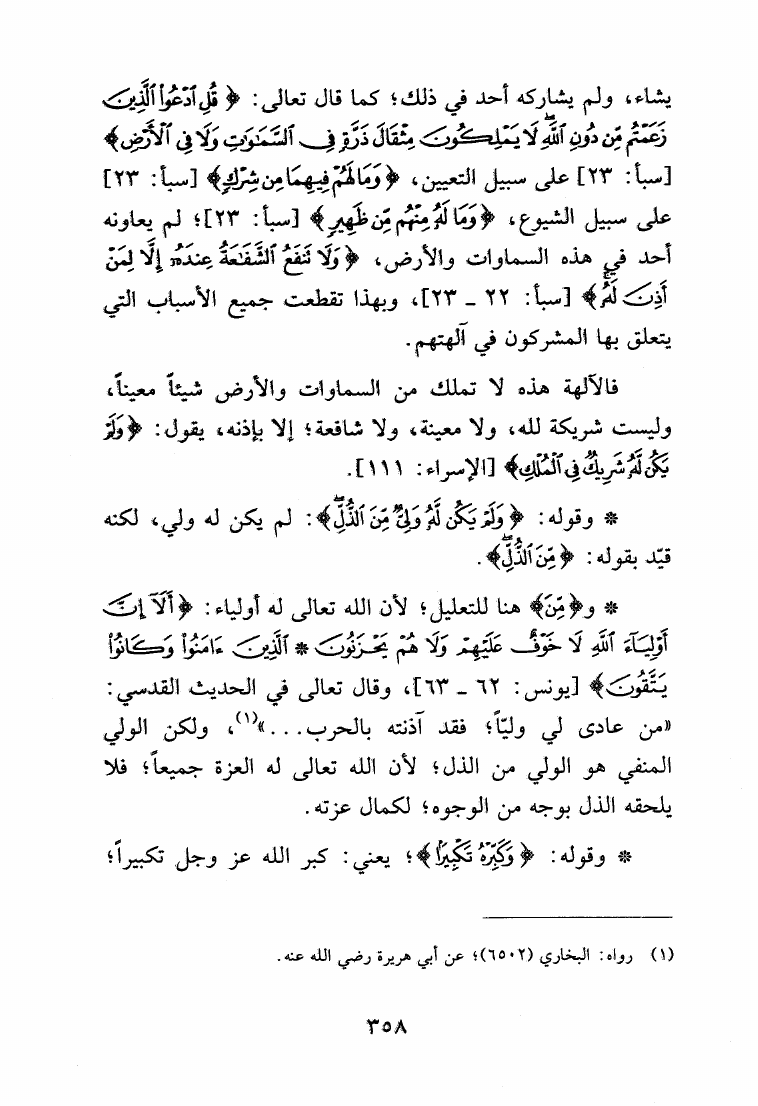 يشاء، ولم يشاركه أحد في ذلك؛ كما قال تعالى: ﴿قُلِ ٱدْعُوا۟ ٱلَّذِينَ
زَعَمْتُم مِّن دُونِ ٱللَّهِۖ لَا يَمْلِكُونَ مِثْقَالَ ذَرَّةٍ فِى ٱلسَّمَـٰوَٰتِ وَلَا فِى ٱلْأَرْضِ﴾
[سبأ: ٢٣] على سبيل التعيين، ﴿وَمَا لَهُمْ فِيهِمَا مِن شِرْكٍ﴾ [سبأ: ٢٣]
على سبيل الشيوع، ﴿وَمَا لَهُۥ مِنْهُم مِّن ظَهِيرٍ﴾ [سبأ: ٢٣]؛ لم يعاونه
أحد في هذه السماوات والأرض، ﴿وَلَا تَنفَعُ ٱلشَّفَـٰعَةُ عِندَهُۥٓ إِلَّا لِمَنْ
أَذِنَ لَهُۥۚ﴾ [سبأ: ٢٢ ـ ٢٣]، وبهذا تقطعت جميع الأسباب التي
يتعلق بها المشركون في آلهتهم.
فالآلهة هذه لا تملك من السماوات والأرض شيئاً معيناً،
وليست شريكة لله، ولا معينة، ولا شافعة؛ إلا بإذنه، يقول: ﴿وَلَمْ
يَكُن لَّهُۥ شَرِيكٌ فِى ٱلْمُلْكِ﴾ [الإسراء: ١١١].
* وقوله: ﴿وَلَمْ يَكُن لَّهُۥ وَلِىٌّ مِّنَ ٱلذُّلِّۖ﴾: لم يكن له ولي، لكنه
قيّد بقوله: ﴿مِّنَ ٱلذُّلِّۖ﴾.
* و﴿مِّنَ﴾ هنا للتعليل؛ لأن الله تعالى له أولياء: ﴿أَلَآ إِنَّ
أَوْلِيَآءَ ٱللَّهِ لَا خَوْفٌ عَلَيْهِمْ وَلَا هُمْ يَحْزَنُونَ * ٱلَّذِينَ ءَامَنُوا۟ وَكَانُوا۟
يَتَّقُونَ﴾ [يونس: ٦٢ ـ ٦٣]، وقال تعالى في الحديث القدسي:
«من عادى لي وليّاً؛ فقد آذنته بالحرب...»(١)، ولكن الولي
المنفي هو الولي من الذل؛ لأن الله تعالى له العزة جميعاً؛ فلا
يلحقه الذل بوجه من الوجوه؛ لكمال عزته.
* وقوله: ﴿وَكَبِّرْهُ تَكْبِيرًۢا﴾؛ يعني: كبر الله عز وجل تكبيراً؛
(١) رواه: البخاري (٦٥٠٢)؛ عن أبي هريرة رضي الله عنه.
٣٥٨